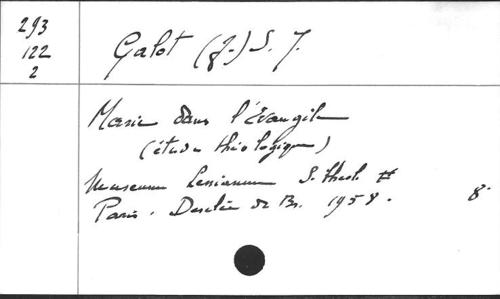 293
122
2
Galot (J.) S. J.
Marie dans l'Évangile
(étude théologique)
Museum Lessianum S. théol. #
Paris. Desclée de Br. 1958. 8°